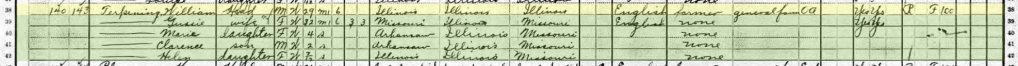 38 140 143 William Head M W 29 m1 6 Illinois Illinois Illinois English farmer general farm OA yes yes R F 100 38
39 wife F W 32 m1 6 3 3 Missouri Illinois Missouri English none yes yes 39
40 Marie daughter F W 4 s Arkansas Illinois Missouri none 40
41 Clarence son M W 2 s Arkansas Illinois Missouri none 41
42 Helen daughter F W s Illinois Illinois Missouri none 42